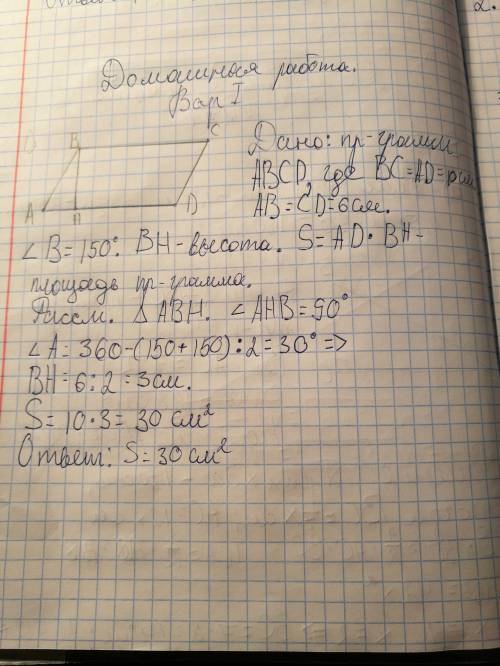 Домашняя работа.
Вар I
B C
A H D
Дано: пр-грамм
ABCD, где BC=AD=10см
AB=CD=6см.
∠B=150°. BH-высота. S=AD·BH-
площадь пр-грамма.
Рассм. Δ ABH. ∠AHB=90°
∠A=360-(150+150):2=30° =>
BH=6:2=3см.
S=10·3=30 см²
Ответ: S=30 см²